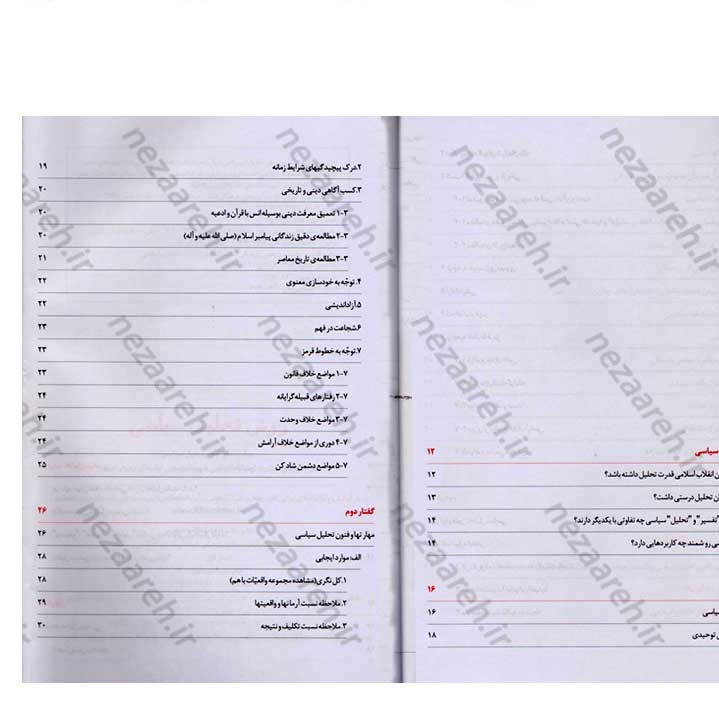 سیاسی ۱۲
ن انقلاب اسلامی قدرت تحلیل داشته باشد؟ ۱۲
ان تحلیل درستی داشت؟ ۱۳
"تفسیر" و "تحلیل" سیاسی چه تفاوتی با یکدیگر دارند؟ ۱۴
سی روشمند چه کاربردهایی دارد؟ ۱۴
۱۶
سیاسی ۱۶
ی توحیدی ۱۸
۲.درک پیچیدگیهای شرایط زمانه ۱۹
۳.کسب آگاهی دینی و تاریخی ۲۰
۳-۱ تعمیق معرفت دینی بوسیله انس با قرآن و ادعیه ۲۰
۳-۲ مطالعه‌ی دقیق زندگانی پیامبر اسلام (صلی الله علیه و آله) ۲۰
۳-۳ مطالعه‌ی تاریخ معاصر ۲۱
۴. توجّه به خودسازی معنوی ۲۲
۵.آزاداندیشی ۲۲
۶.شجاعت در فهم ۲۳
۷.توجّه به خطوط قرمز ۲۳
۷-۱ مواضع خلاف قانون ۲۳
۷-۲ رفتارهای قبیله گرایانه ۲۴
۷-۳ مواضع خلاف وحدت ۲۴
۷-۴ دوری از مواضع خلاف آرامش ۲۴
۷-۵ مواضع دشمن شاد کن ۲۵
گفتار دوم ۲۶
مهارتها و فنون تحلیل سیاسی ۲۶
الف: موارد ایجابی ۲۸
۱.کل نگری (مشاهده مجموعه واقعیّات با هم) ۲۸
۲. ملاحظه نسبت آرمانها و واقعیتها ۲۹
۳. ملاحظه نسبت تکلیف و نتیجه ۳۰
nezaareh.ir
nezaareh.ir
nezaareh.ir
nezaareh.ir
nezaareh.ir
nezaareh.ir
nezaareh.ir
nezaareh.ir
nezaareh.ir
nezaareh.ir
nezaareh.ir